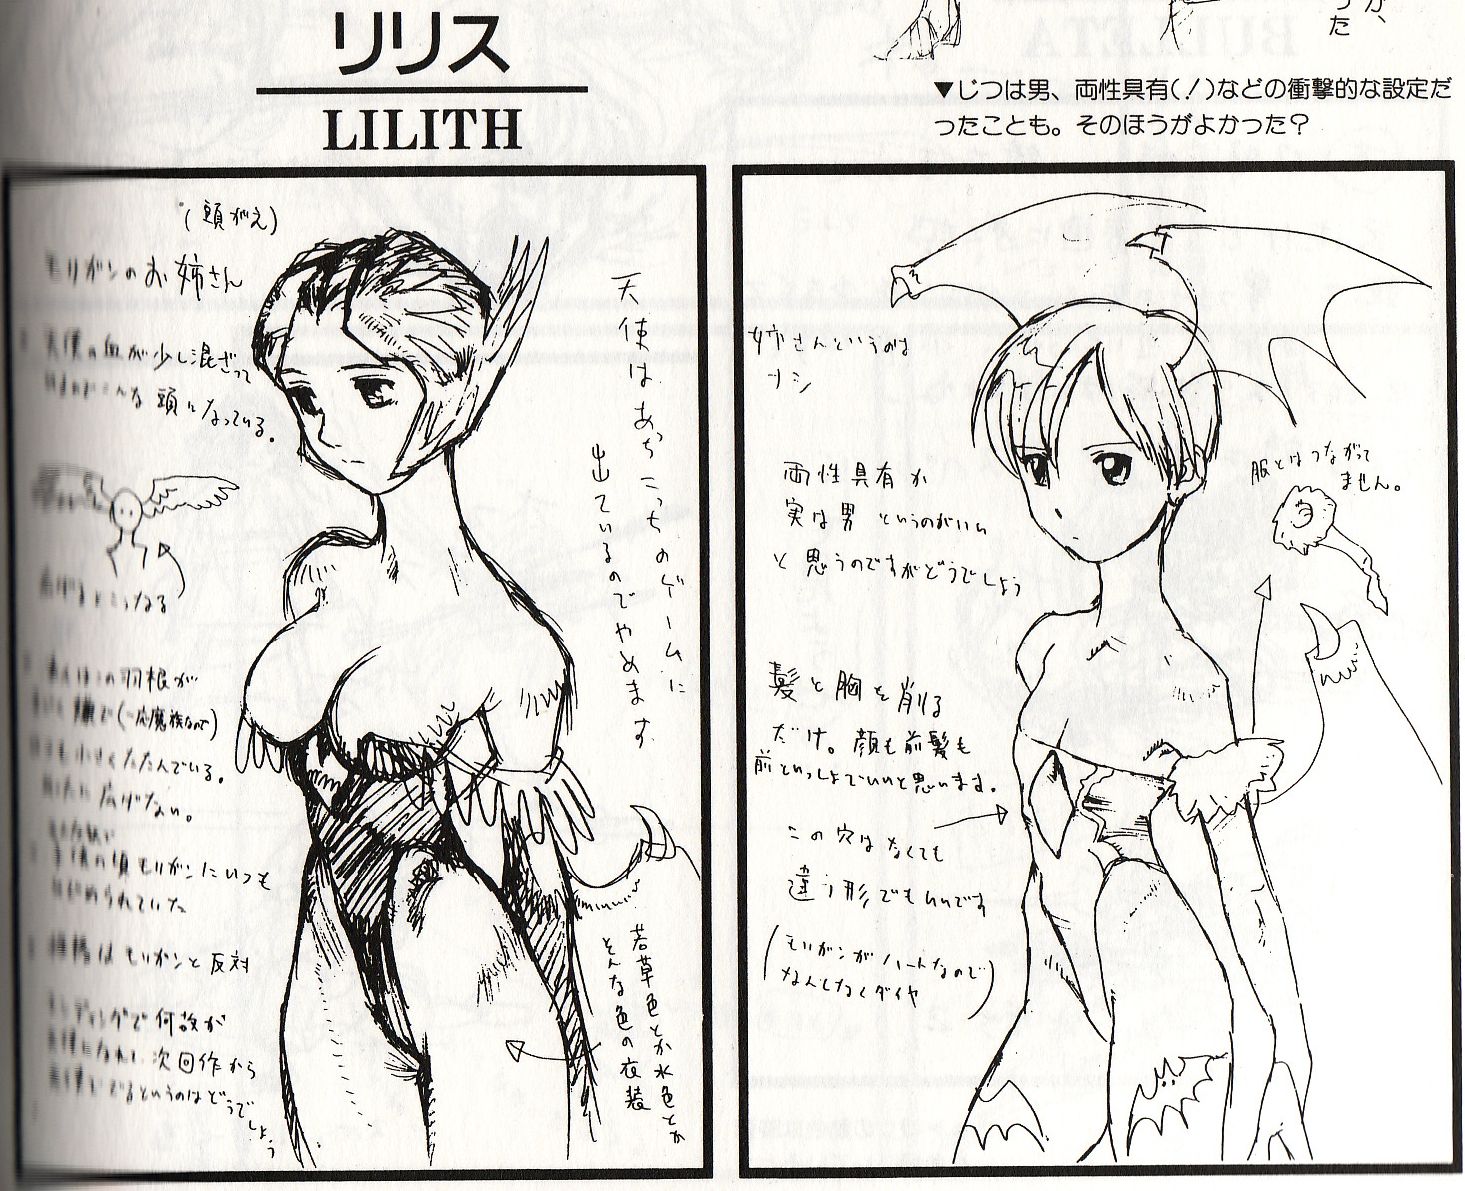 リリス
LILITH
▼じつは男、両性具有(!)などの衝撃的な設定だ
ったことも。そのほうがよかった?
か、
った
(頭がえ)
モリガンのお姉さん
天使の血が少し混ざって
こんな頭になっている。
広げるとこうなる
この羽根が
嫌で(一応魔族なので)
小さくたたんでいる。
広げない。
子供の頃モリガンにいつも
いじめられていた
性格はモリガンと反対
エンディングで何故か
天使になれて次回作から
天使ででるというのはどうでしょう
天使はあっちこっちのゲームに
出ているのでやめます
若草色とか水色とか
そんな色の衣装
姉さんというのは
ナシ
両性具有か
実は男というのがいい
と思うのですがどうでしょう
服とはつながって
ません。
髪と胸を削る
だけ。顔も前髪も
前といっしょでいいと思います。
この穴はなくても
違う形でもいいです
(モリガンがハートなので
なんとなくダイヤ)